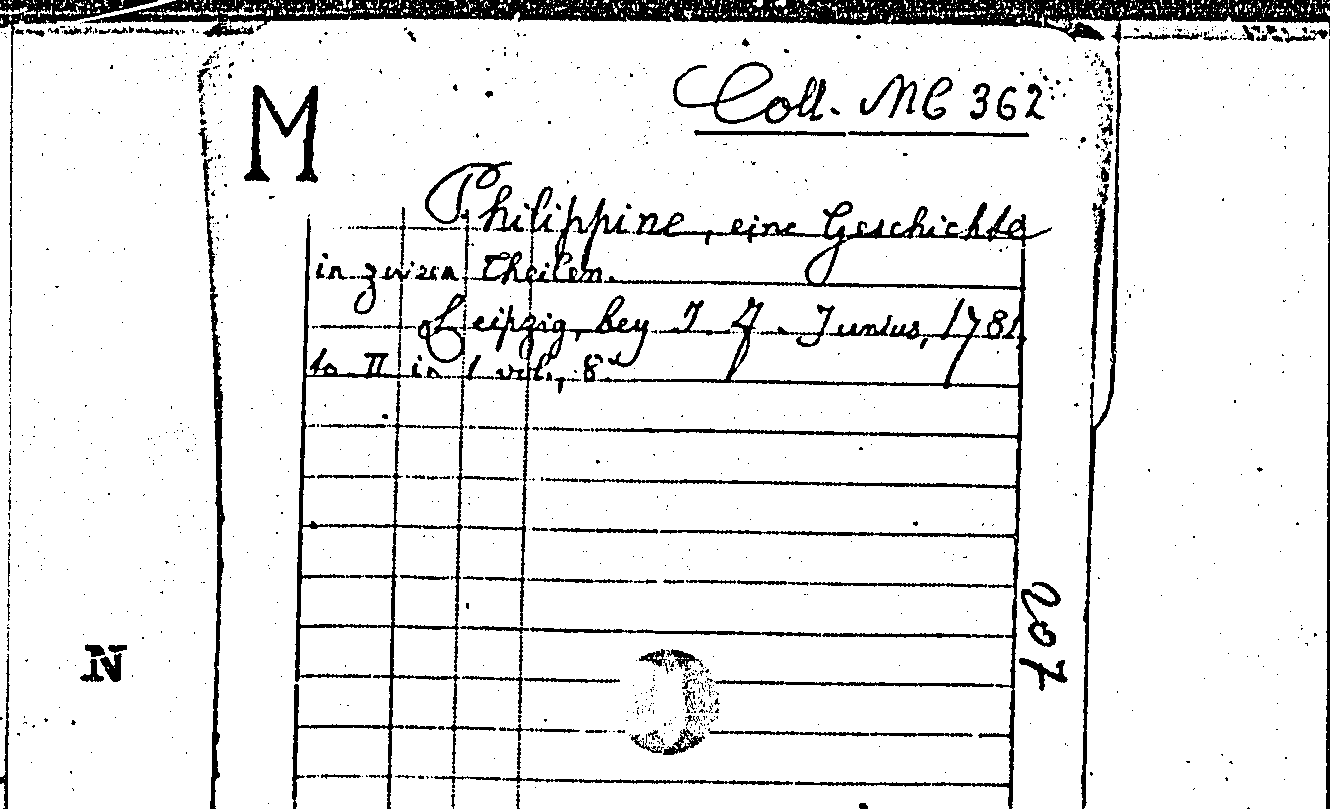 M
Coll. MC 362
Philippine, eine Geschichte
in zwizen Theilen.
Leipzig, bey J. F. Junius, 1781,
to II in 1 vol., 8°
207
N